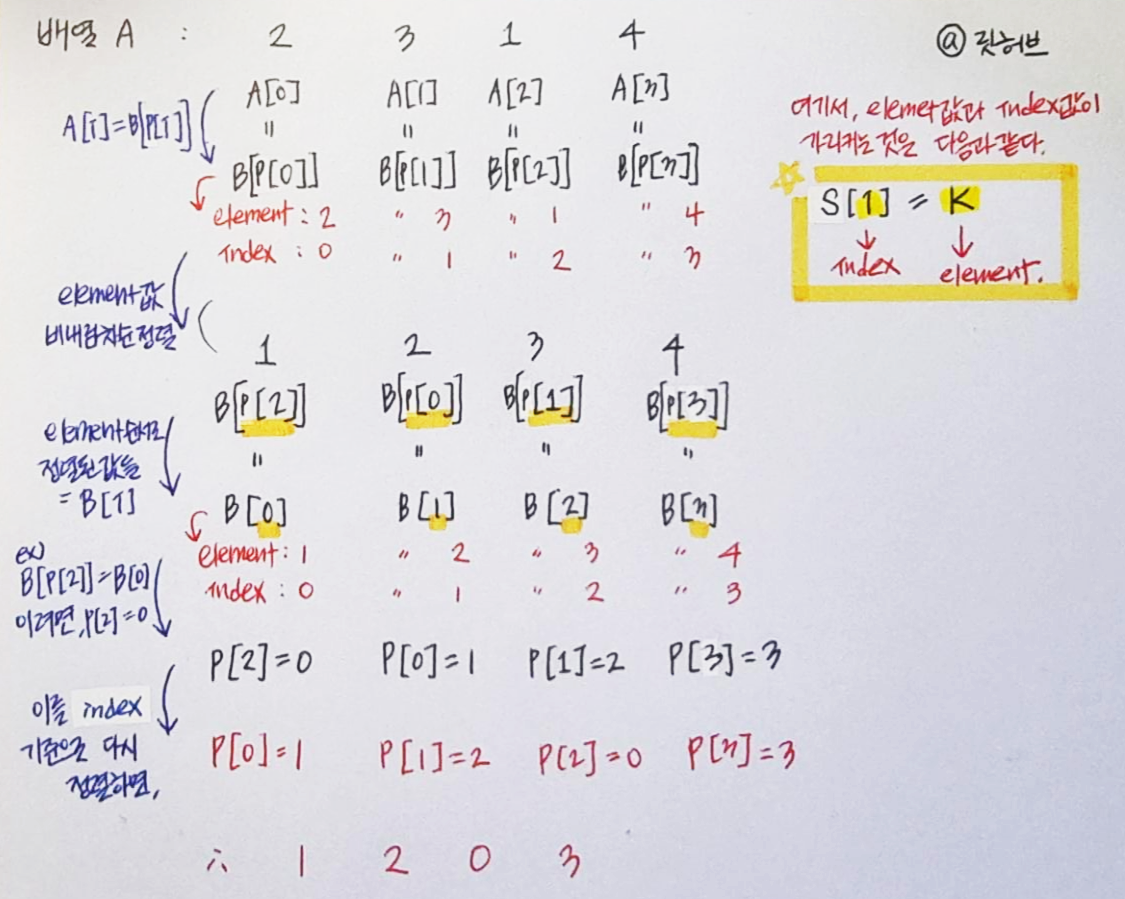 배열 A : 2 3 1 4
@ 릿허브
A[0] A[1] A[2] A[3]
A[i]=B[P[i]]
" " " "
B[P[0]] B[P[1]] B[P[2]] B[P[3]]
element : 2 " 3 " 1 " 4
index : 0 " 1 " 2 " 3
여기서, element값과 index값이
가리키는 것은 다음과 같다.
S[i] = K
index element.
element값
비내림차순 정렬
1 2 3 4
B[P[2]] B[P[0]] B[P[1]] B[P[3]]
element순서로
정렬된 값들
= B[i]
" " " "
B[0] B[1] B[2] B[3]
element : 1 " 2 " 3 " 4
index : 0 " 1 " 2 " 3
ex)
B[P[2]]=B[0]
이려면, P[2]=0
P[2]=0 P[0]=1 P[1]=2 P[3]=3
이를 index
기준으로 다시
정렬하면,
P[0]=1 P[1]=2 P[2]=0 P[3]=3
∴ 1 2 0 3